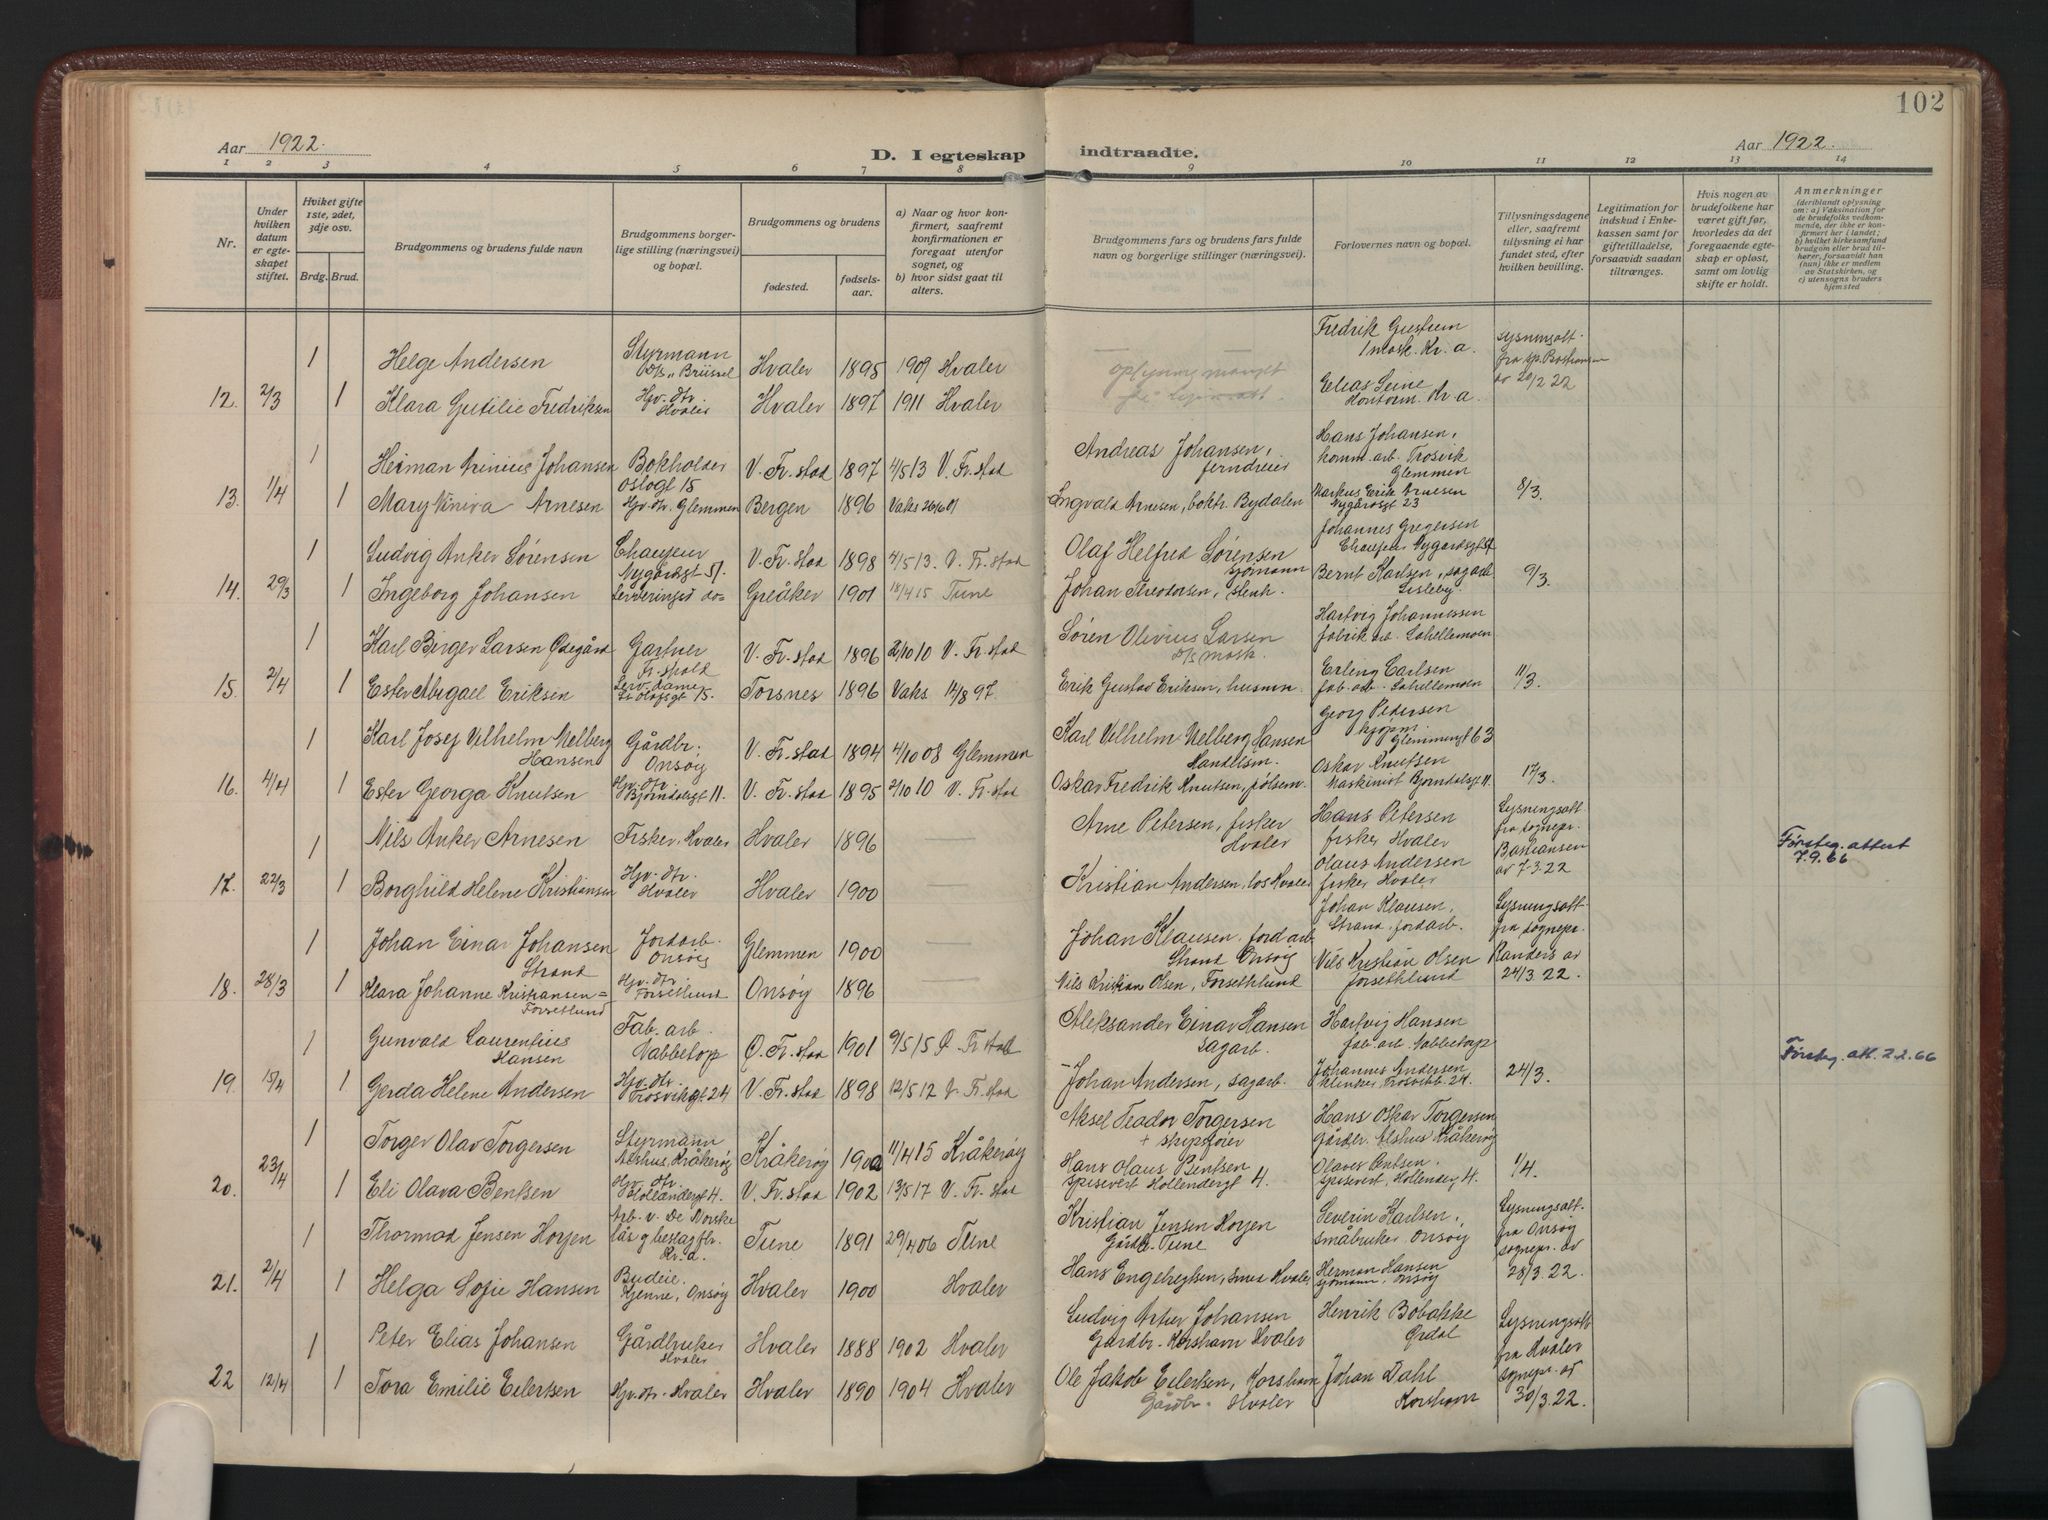 102
Aar 1922.
D. I egteskap indtraadte.
Aar 1922.
1 2 3 4 5 6 7 8 9 10 11 12 13 14
Nr.
Under hvilken datum er egteskapet stiftet.
Hviket gifte 1ste, 2det, 3dje osv.
Brdg. Brud.
Brudgommens og brudens fulde navn
Brudgommens borgerlige stilling (næringsvei) og bopæl.
Brudgommens og brudens
fødested.
fødselsaar.
a) Naar og hvor konfirmert, saafremt konfirmationen er foregaat utenfor sognet, og
b) hvor sidst gaat til alters.
Brudgommens fars og brudens fars fulde navn og borgerlige stillinger (næringsvei).
Forlovernes navn og bopæl.
Tillysningsdagene eller, saafremt tillysning ei har fundet sted, efter hvilken bevilling.
Legitimation for indskud i Enkekassen samt for giftetilladelse, forsaavidt saadan tiltrænges.
Hvis nogen av brudefolkene har været gift før, hvorledes da det foregaaende egteskap er opløst, samt om lovlig skifte er holdt.
Anmerkninger
(deriblandt oplysning om: a) Vaksination for de brudefolks vedkommende, der ikke er konfirmert her i landet;
b) hvilket kirkesamfund brudgom eller brud tilhører, forsaavidt han (hun) ikke er medlem av Statskirken, og
c) utensogns bruders hjemsted
1 Helge Andersen Styrmann D/S "Brüssel Hvaler 1895 1909 Hvaler — — Fredrik 1 mask. Kr.a. Lysningsatt. fra sp. Bastiansen
12. 2/3 1 Klara Fredriksen Hjv. dtr. Hvaler Hvaler 1897 1911 Hvaler oplysning mangler Elias Kr.a. av 20/2 22
1 Herman Arinius Johansen Bokholder Oslogt 15 V. Fr.stad 1897 4/5 13 V. Fr.stad Andreas Johansen, Hans Johansen, komm. arb. Trosvik Glemmen
13. 1/4 1 Mary Arnesen Hjv. dtr. Glemmen Bergen 1896 Vaks Ingvald Arnesen, boktr. Bydalen Markus Erik Arnesen Nygårdsgt 23 8/3.
1 Ludvig Anker Sørensen Chauffeur Nygårdsgt 51. V. Fr. stad 1898 4/5 13. V. Fr. stad Olaf Helfred Sørensen sjømann Johannes Gregersen Chauffeur Nygårdsgt 51
14. 29/3 1 Ingeborg Johansen Greåker 1901 18/4 15 Tune Johan Theodorsen, stenh. Bernt Karlsen, sagarb. Lisleby. 9/3.
1 Karl Birger Larsen Ødegård Gartner V. Fr. stad 1896 2/10 10 V. Fr. stad Søren Olivius Larsen Hartvig Johannessen fabrik arb. Lahellemoen
15. 2/4 1 Ester Abigael Eriksen Serv. dame St. Olafsgt 15. Torsnes 1896 Vaks 14/8 97. Erik Gustav Eriksen, husmn. Erling Carlsen fab. arb. Lahellemoen 11/3.
1 Karl Josef Vilhelm Melberg Hansen Gårdbr. Onsøy V. Fr. stad 1894 4/10 08 Glemmen Karl Vilhelm Melberg Hansen Handelsm. Georg Pedersen kjøpm. Glemmengt 63
16. 4/4 1 Ester Georga Knutsen Hjv. dtr. Bjørndalsgt 11. V. Fr. stad 1895 2/10 10 V. Fr. stad Oskar Fredrik Knutsen, pølsem. Oskar Knutsen Maskinist Bjørndalsgt 11. 17/3.
1 Nils Anker Arnesen Fisker, Hvaler Hvaler 1896 — Arne Petersen, fisker Hvaler Hans Petersen fisker Hvaler Lysningsatt. fra sognepr. Førsteg. attest 7.9.66
17. 22/3 1 Borghild Helene Kristiansen Hjv. dtr. Hvaler Hvaler 1900 — Kristian Andersen, los Hvaler Olaus Andersen fisker Hvaler Bastiansen av 7-3. 22
1 Johan Einar Johansen Strand Jordarb. Onsøy Glemmen 1900 — Johan Klausen, jordarb. Strand Onsøy Johan Klausen, Strand, jordarb. Lysningsatt. fra sognepr.
18. 28/3 1 Klara Johanne Kristiansen = Forsetlund Hjv. dtr. Forsetlund Onsøy 1896 Nils Kristian Olsen, Forsethlund Nils Kristian Olsen Forsethlund Randers av 24/3. 22.
1 Gunvald Laurentius Hansen Fab. arb. Nabbetorp Ø. Fr. stad 1901 9/5 15 Ø. Fr stad Aleksander Einar Hansen sagarb. Hartvig Hansen fab. arb. Nabbetorp Førsteg. att. 2.2.66
19. 15/4 1 Gerda Helene Andersen Hjv. dtr. Trosvikgt 24 V. Fr. stad 1898 12/5 12 V. Fr. stad Johan Andersen, sagarb. Johannes Andersen 24. 24/3.
1 Torger Olav Torgersen Styrmann Alshus, Kråkerøy Kråkerøy 1900 11/4 15 Kråkerøy Aksel Teador Torgersen + skipsfører Hans Oskar Torgersen Gårdbr. Alshus Kråkerøy
20. 23/4 1 Eli Olava Bentsen Hjv. dtr. Hollandergt 4. V. Fr. stad 1902 13/5 17 V. Fr. stad Hans Olaus Bentsen spisevert Hollendergt 4. Olaves Bentsen. Spisevert, Hollenderg 4. 1/4.
1 Thormod Jensen Horjen Arb. v. De Norske lås g beslagfbr. Kr.a. Tune 1891 29/4 06 Tune Kristian Jensen Horjen Gårdbr. Tune Severin Karlsen, småbruker Onsøy Lysningsatt. fra Onsøy
21. 2/4 1 Helga Sofie Hansen Budeie, Kjenne, Onsøy Hvaler 1900 Hvaler Hans Engelregtsen, smed Hvaler Herman Hansen sjømann, Onsøy sognepr. av 28/3. 22.
1 Peter Elias Johansen Gårdbruker Hvaler Hvaler 1888 1902 Hvaler Ludvig Johansen Gårdbr. Korshavn Hvaler Henrik Bobakke Ørdal Lysningsatt fra Hvaler
22 12/4 1 Tora Emilie Eilertsen Hjv. dtr. Hvaler Hvaler 1890 1904 Hvaler Ole Jakob Eilertsen, Korshavn Gårdbr. Hvaler Johan Dahl Korshavn sognepr. av 30/3. 22.